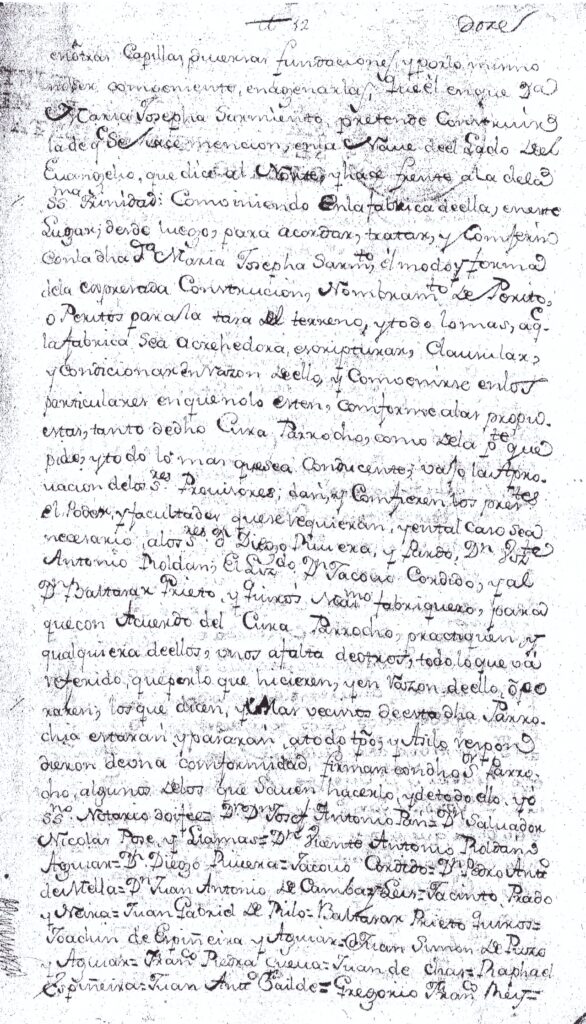 12 Doze
en otras Capillas, diuersas fundaciones, y por lo mismo
no ser combeniente, enagenarla; Que el en que Dª
Maria Josepha Sarmiento, pretende Construir
la de q.e se hace mencion, en la Naue de el Lado de el
Euangelio, que dice al Norte, y hace frente a la de la
SS.ma Trinidad: Combiniendo en la fabrica de ella, en este
Lugar; desde luego, para acordar, tratar, y Comferir
Con la dha D.ª Maria Josepha Sarm.to, el modo y forma
de la expresada Construcion, Nombram.to de Perito,
o Peritos para la tasa del terreno, y todo lo mas, a q.e
la fabrica sea acrehedora, escripturar, Clausular,
y Condicionar en razon de ello, y Combenirse en los
particulares en que no lo esten, comforme a las propu
estas, tanto de dho Cura Parrocho, como de la p.te que
pide, y todo lo mas que sea Conducente; vajo la Apro
uacion de los S.res Prouisores; dan, y Comfieren los pres.tes
el Poder, y facultades que se requieran, y en tal caso sea
necesario, a los S.res D.n Diego Riuera, y Pardo, D.n Viz.te
Antonio Roldan; El Liz.do D.n Jacouo Cordido, y al
D.n Baltasar Prieto, y Quiros Maim.mo fabriquero, para
que con Acuerdo del Cura Parrocho, practiquen, y
qualquiera de ellos, vnos a falta de otros, todo lo que vá
referido, que por lo que hicieren, y en razon de ello, ope
raren, los que dicen, y Mas vecinos de esta dha Parro
chia estaran, y pasaran, a todo tpo; y Asi lo respon
dieron de vna comformidad, firman con dho S.or Parro
cho, algunos de los que Sauen hacerlo, y de todo ello, yo
ss.no Notario doi fee= D.n Josef Antonio Pan= D.n Salvador
Nicolas Pose, y Llamas= D.n Vicente Antonio Roldan
Aguiar= D.n Diego Riuera= Jacouo Cordido= D.n Pedro Ant.o
de Mella= D.n Juan Antonio de Camba= Luis= Jacinto Prado
y Neira= Juan Gabriel de Rilo= Baltasar Prieto Quiros=
Joachin de Espiñeira y Aguiar= Juan Simon de Pazo
y Aguiar= Fran.co Piedra Cueua= Juan de Chas= Raphael
Espiñeira= Juan Ant.o Bailde= Gregorio Fran.co Rey=